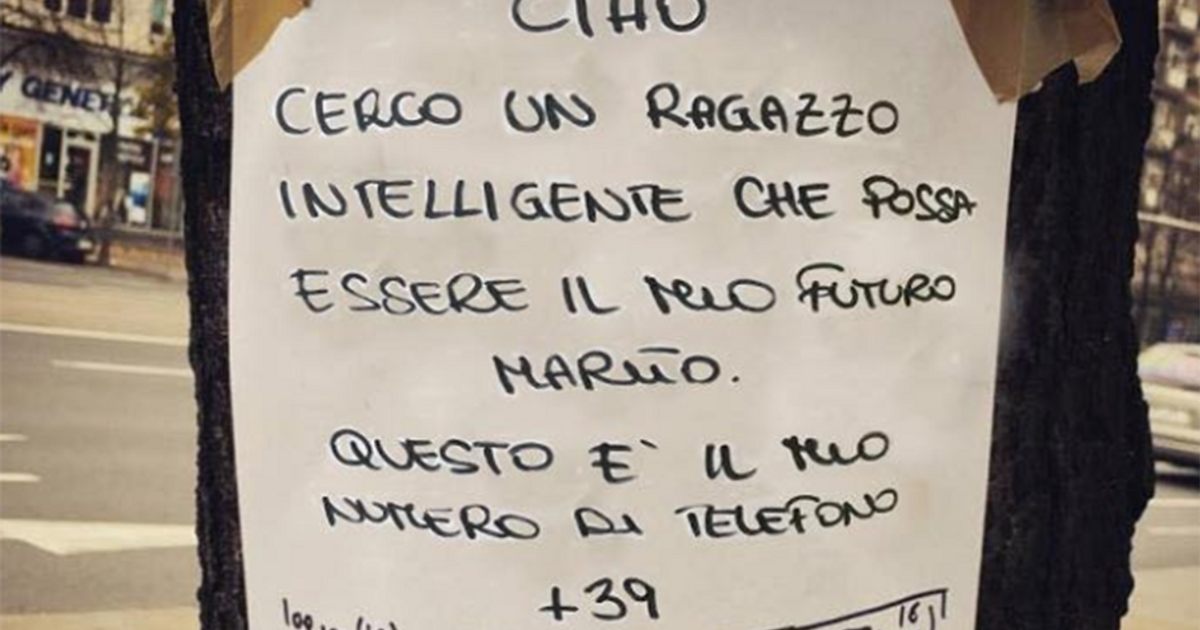 CIAO
CERCO UN RAGAZZO
INTELLIGENTE CHE POSSA
ESSERE IL MIO FUTURO
MARITO.
QUESTO E` IL MIO
NUMERO DI TELEFONO
+39
Y GENER